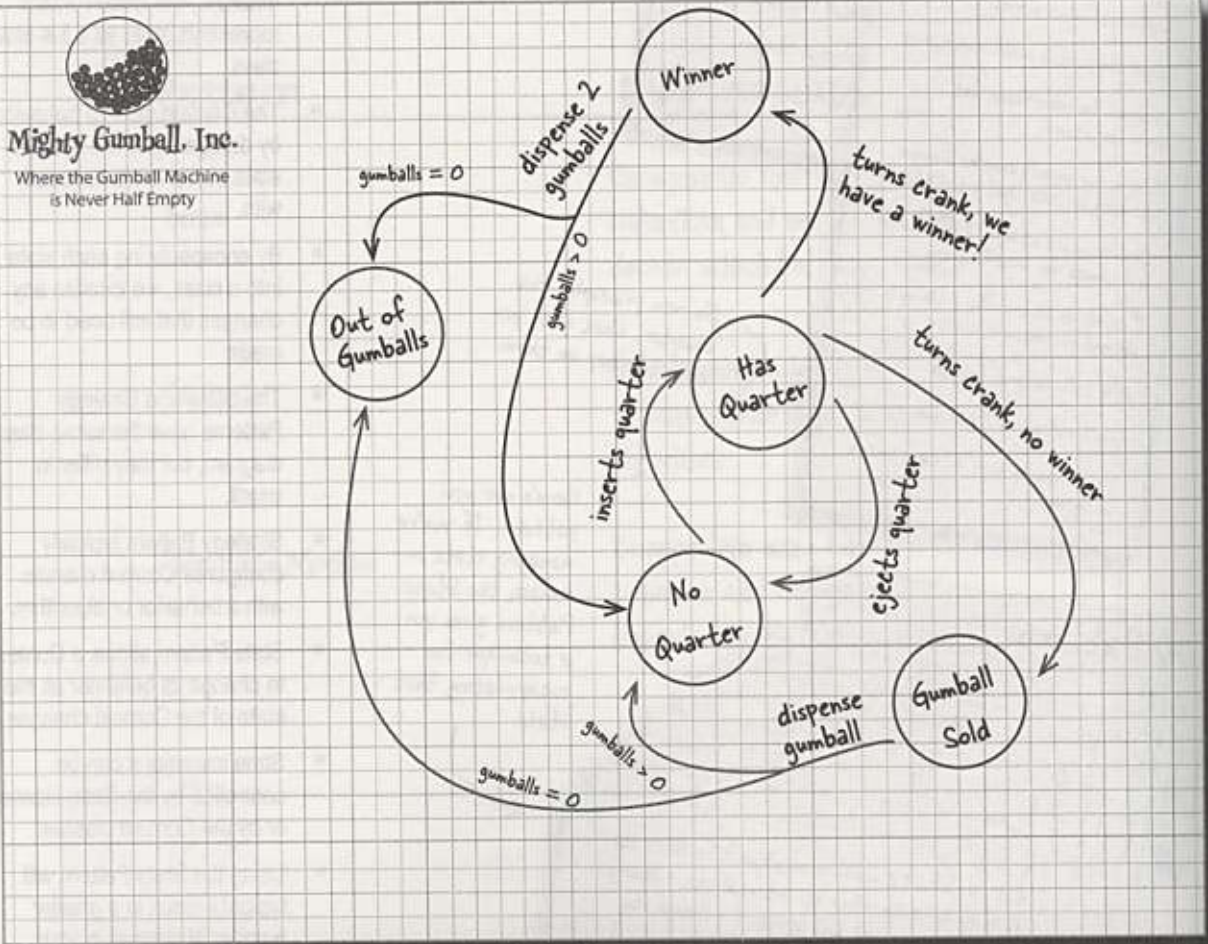 Mighty Gumball, Inc.
Where the Gumball Machine
is Never Half Empty
Winner
dispense 2
gumballs
gumballs = 0
gumballs > 0
turns crank, we
have a winner!
Out of
Gumballs
Has
Quarter
inserts quarter
turns crank, no winner
ejects quarter
No
Quarter
Gumball
Sold
dispense
gumball
gumballs > 0
gumballs = 0